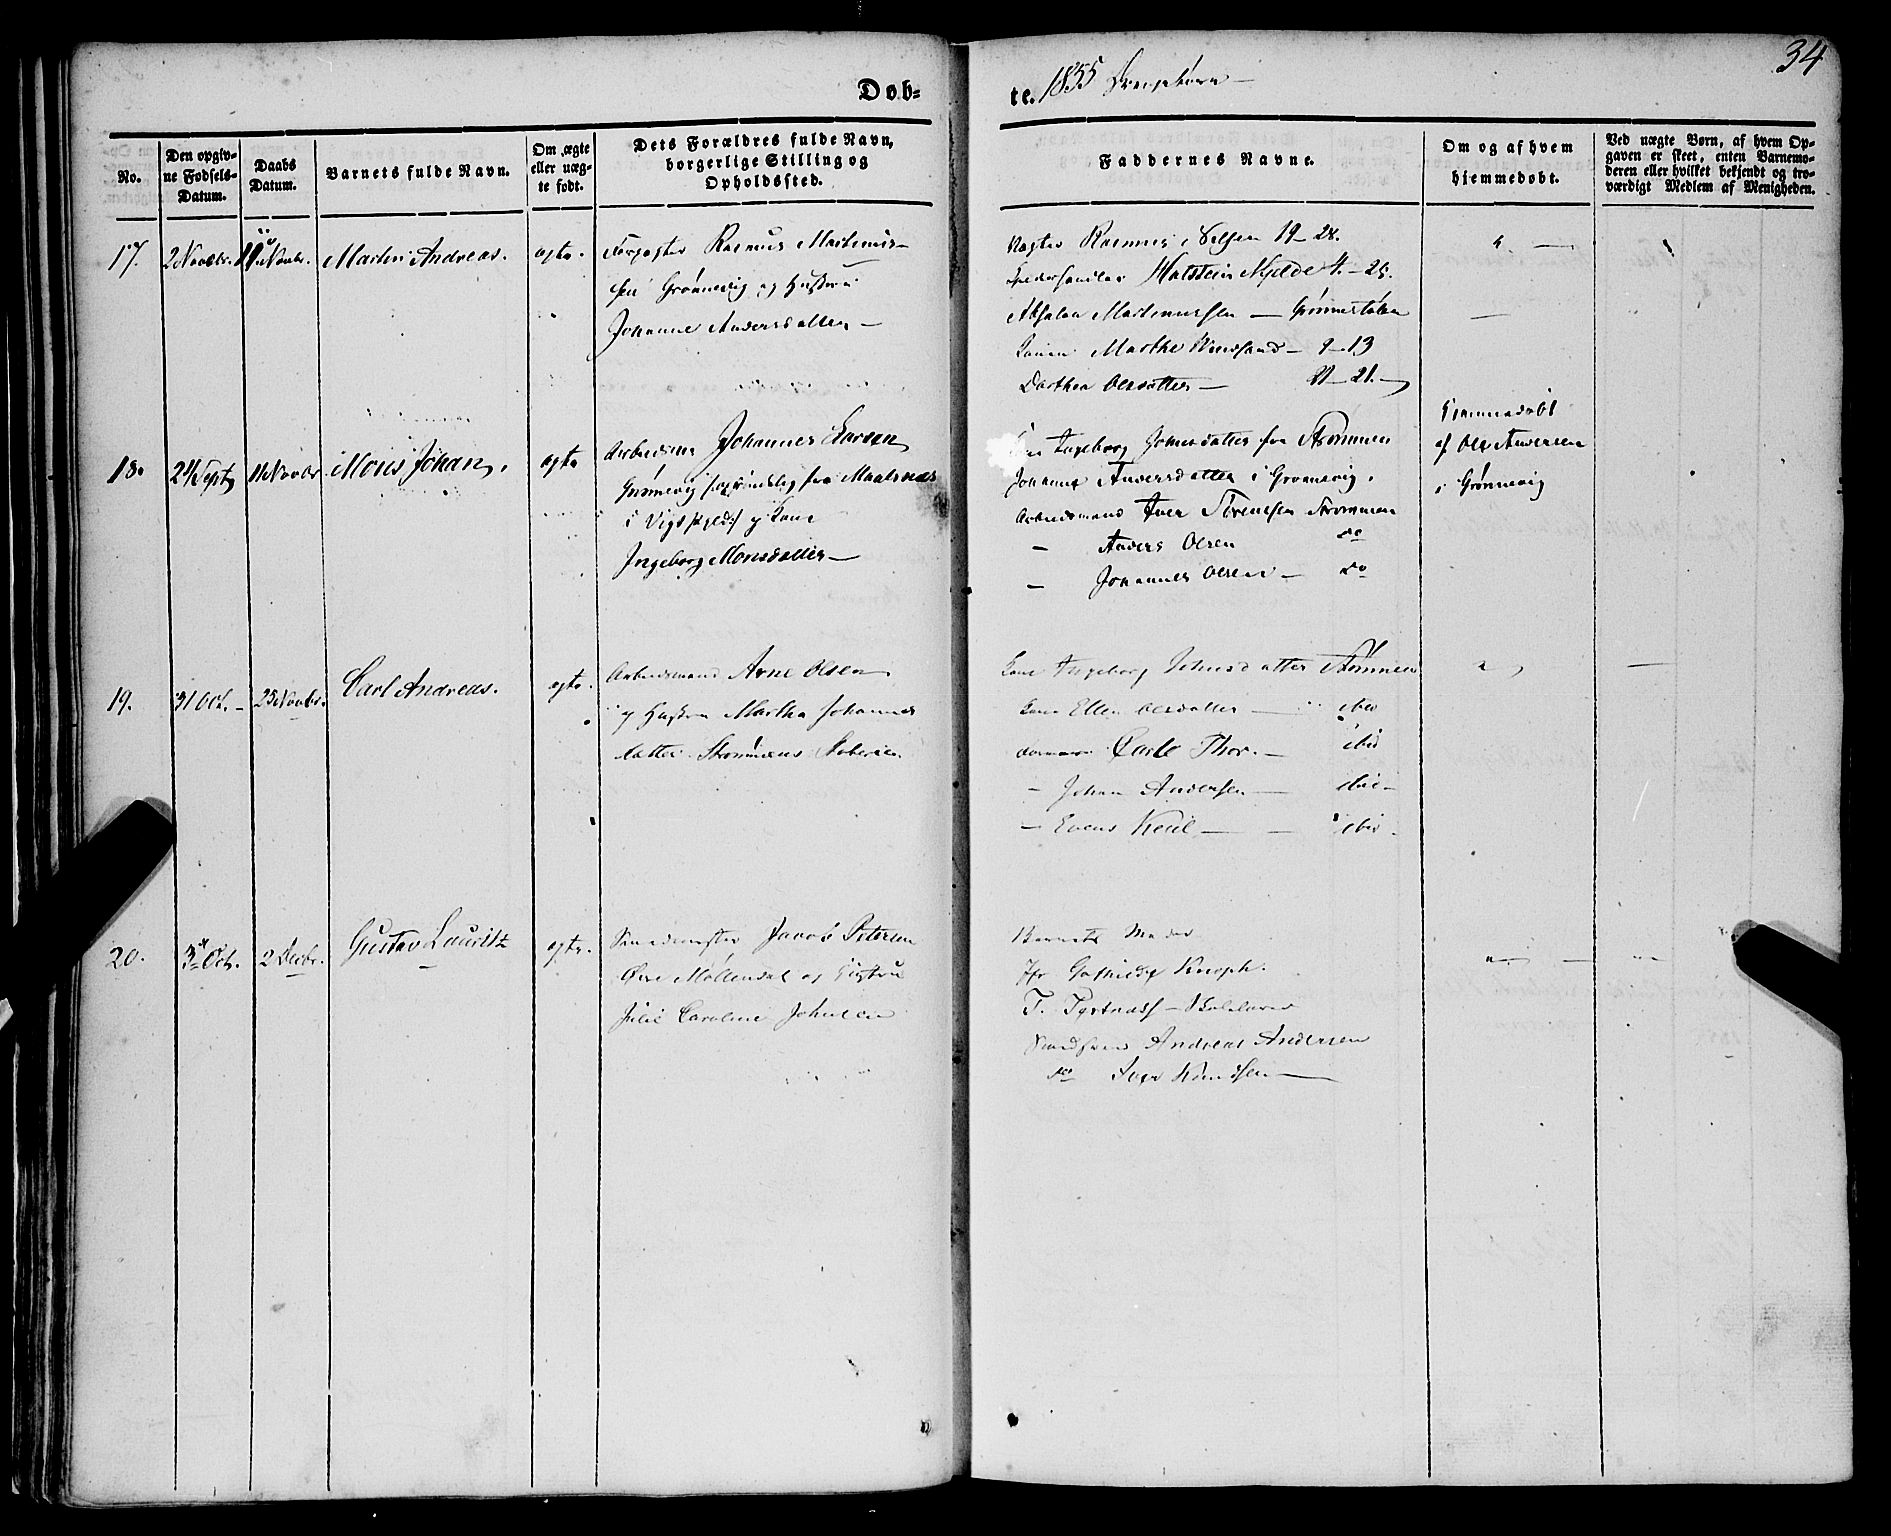 34
Døb-
te. 1855 Drengebørn
No.
Den opgiv-
ne Fødsels-
Datum.
Daabs
Datum.
Barnets fulde Navn.
Om ægte
eller uæg-
te født.
Dets Forældres fulde Navn,
borgerlige Stilling og
Opholdssted.
Faddernes Navne.
Om og af hvem
hjemmedøbt.
Ved uægte Børn, af hvem Op-
gaven er skeet, enten Barnemo-
deren eller hvilket bekjendt og tro-
værdigt Medlem af Menigheden.
17. 2 Novbr. 11 Novbr. Martin Andreas. ægte.
Rasmus Martinus-
sen Grønnevig og Hustru
Johanne Andersdatter
Vægter Rasmus Nilsen 19-28.
Holstein Mjelde 4.-28.
Absalon Martinussen - Grønnestølen
Konen Marthe - 9-13
Dorthea Olsdatter - 21-21.
18. 24 Sept 11 Novbr Mons Johan. ægte
Arbeidsm. Johannes Larsen
Grønnevig fra Maalsnæs
i Vigs og Kone
Ingeborg Monsdatter
Ingeborg Johnsdatter fra Strømmen
Johanne Andersdatter i Grønnevig.
Arbeidsmand Iver Sørensen Strømmen
- Anders Olsen do
- Johannes Olsen - do
Hjemmedøbt
af Ole Andersen
i Grønnevig
19. 31 Oct. - 25 Novbr. Carl Andreas. ægte.
Arbeidsmand Arne Olsen
og Hustru Martha Johannes
datter Strømmens
Kone Ingeborg Johnsdatter Strømmen
Kone Ellen Olsdatter - ibid
Carl Thor. - ibid
- Johan Andersen - ibid
- Evens - ibid.
20. 3 Oct. 2 Decbr. Gustav Lauritz ægte.
Smedmester Jacob Petersen
Øvre Møllendal og Hustru
Julie Caroline Johnsen
Barnets Moder
Jfr Knoph.
T.
Smedsvend Andreas Andersen
do Knudsen